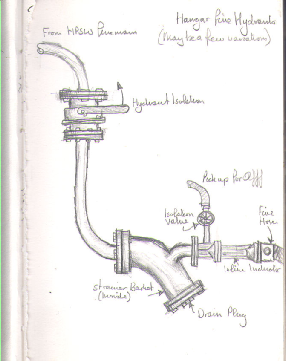 Hangar Fire Hydrants
(May be a few variations)
From HPSW
Hydrant Isolation
Pick up for Afff
Isolation
Valve
Fire
Hose
Inline Inductor
Strainer Basket
(inside)
Drain Plug